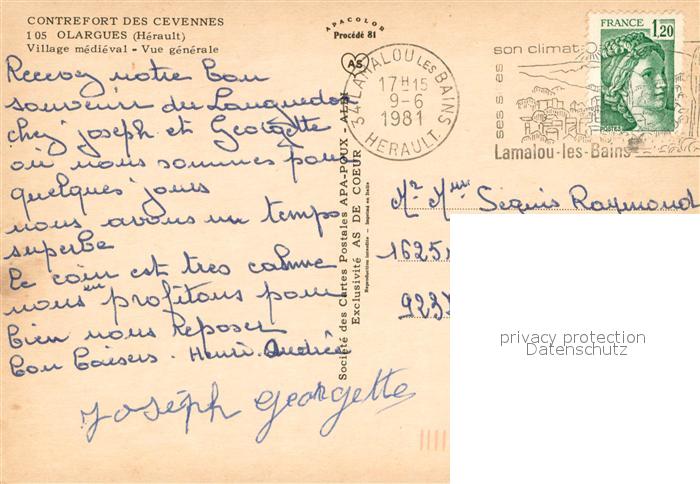 CONTREFORT DES CEVENNES
1 05 OLARGUES (Hérault)
Village médiéval - Vue générale
APACOLOR
Procédé 81
AS
Recevez notre bon
souvenir du Languedoc
chez joseph et Georgette
où nous sommes pour
quelques jours
nous avons un temps
superbe
le coin est tres calme
nous en profitons pour
bien nous reposer
bon baisers. Henri. Andrée
Joseph Georgette
Société des Cartes Postales APA-POUX - ALBI
Exclusivité AS DE COEUR
Reproduction interdite - Imprimé en Italie
34 LAMALOU les BAINS
17H15
9-6
1981
HERAULT
son climat
ses
Lamalou-les-Bains
FRANCE 1,20
POSTES
Mr Mme Séguis Raymond
1625
923
privacy protection
Datenschutz